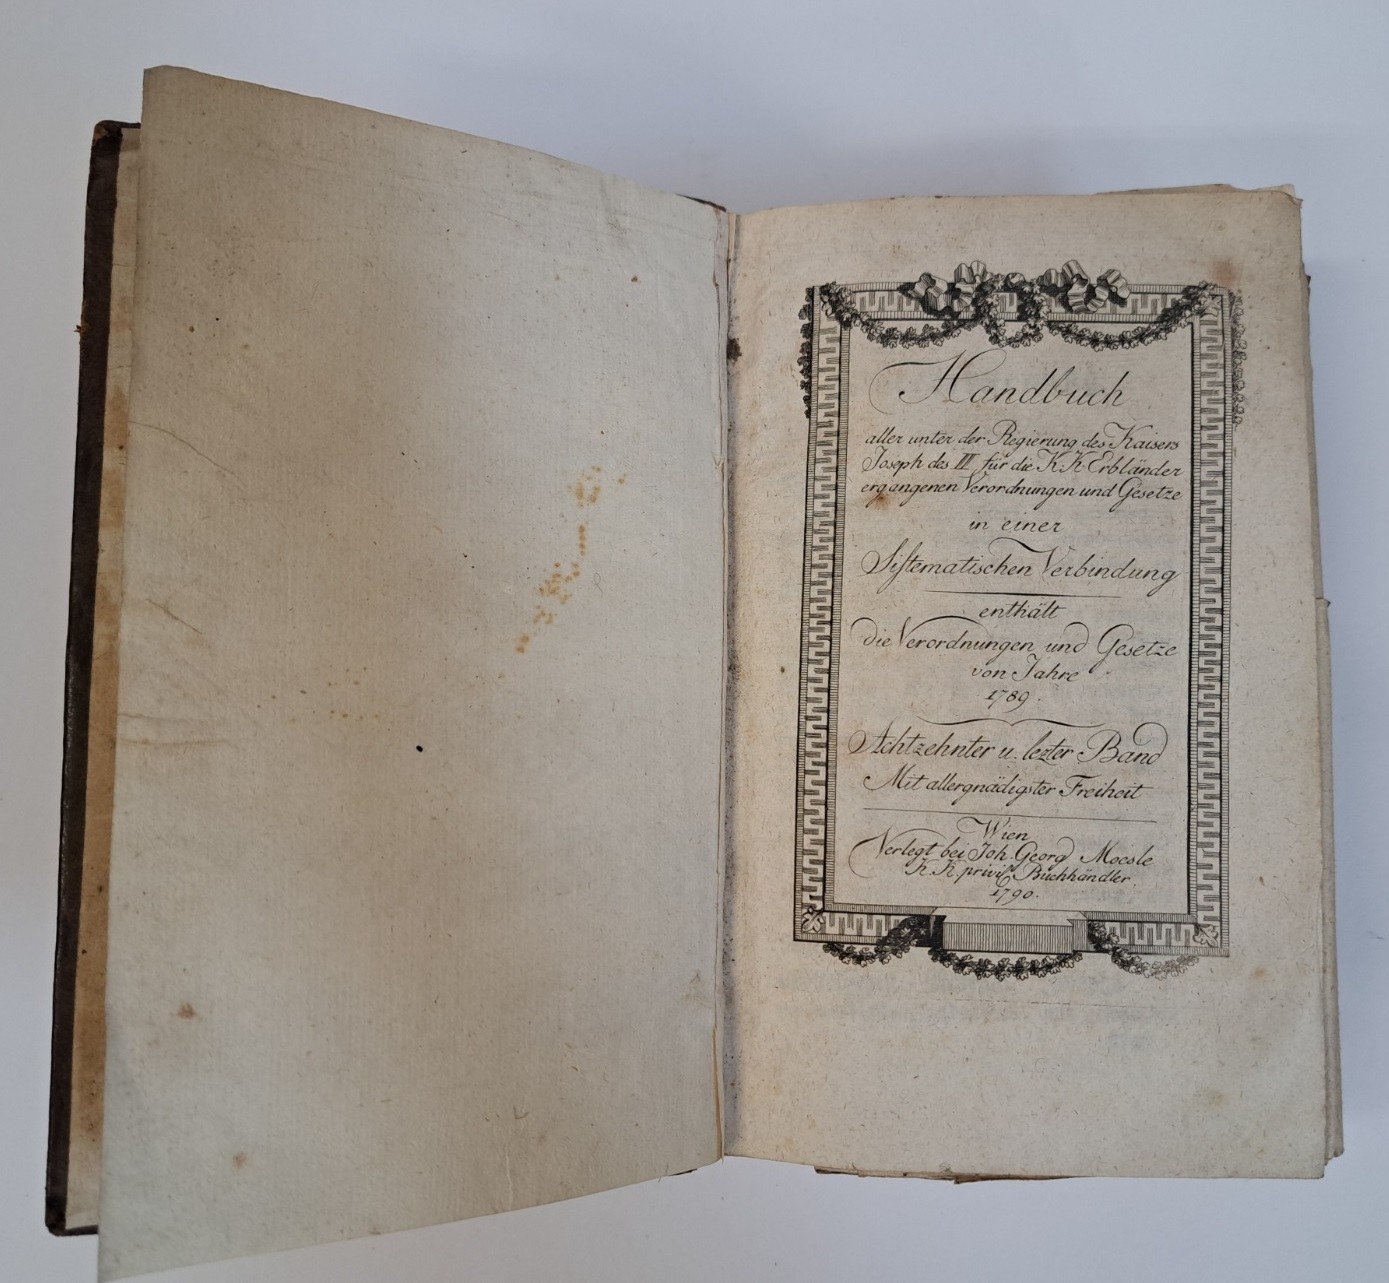 Handbuch
aller unter der Regierung des Kaisers
Joseph des II für die K.K. Erbländer
ergangenen Verordnungen und Gesetze
in einer
Sistematischen Verbindung
enthält
die Verordnungen und Gesetze
von Jahre
1789.
Achtzehnter u. lezter Band
Mit allergnädigster Freiheit
Wien
Verlegt bei Joh. Georg Moesle
K.K. privil. Buchhändler
1790.